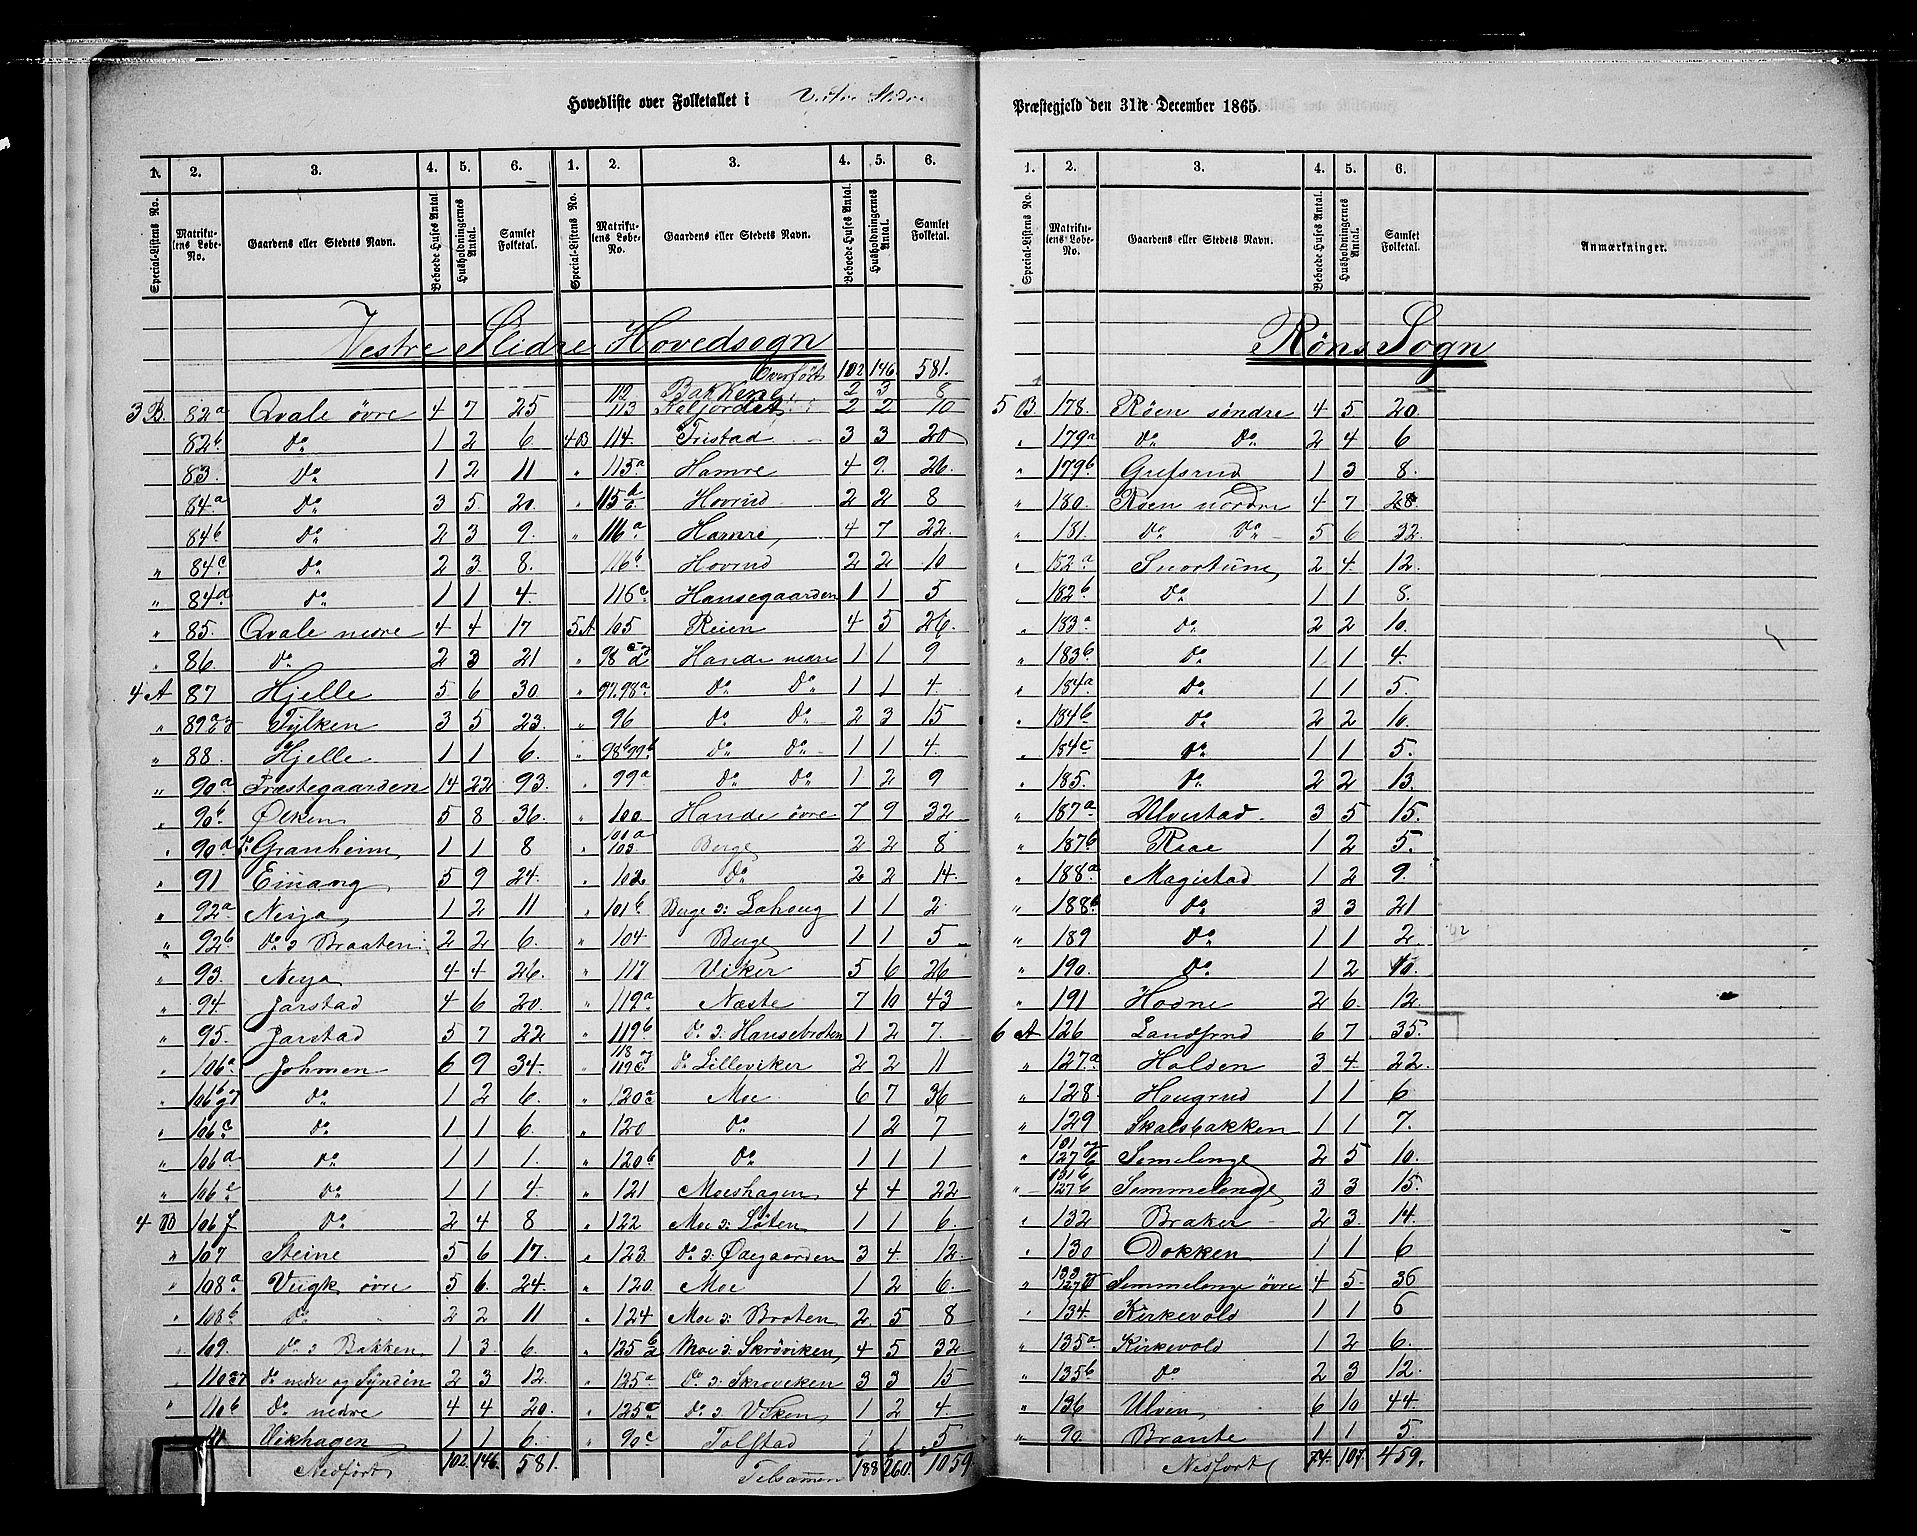 Hovedliste over Folketallet i Vestre Slidre
Præstegjeld den 31te December 1865.
1. 2. 3. 4. 5. 6. 1. 2. 3. 4. 5. 6.
Special-Listens No. Matrikulens Løbe-No. Gaardens eller Stedets Navn. Beboede Huses Antal. Husholdningernes Antal. Samlet Folketal. Special-Listens No. Matrikulens Løbe-No. Gaardens eller Stedets Navn. Beboede Huses Antal. Husholdningernes Antal. Samlet Folketal.
Vestre Slidre Hovedsogn
3 B. 82a Qvale øvre 4 7 25
82b Do 1 2 6
83. Do 1 2 11
84a Do 3 5 20
84b Do 2 3 9.
" 84c Do 2 3 8.
" 84d Do 1 1 4.
" 85. Qvale nedre 4 4 17
" 86 Do 2 3 21
4 A 87 Hjelle 5 6 30
" 89a Tylken 3 5 23
" 88. Hjelle 1 1 6.
" 90a Præstegaarden 14 22 93.
" 90b Ølken 5 8 36.
" 90a Granheim 1 1 8
" 91 Einang 5 9 24.
" 92a Nesja 1 2 11
" 92b Do : Braaten 2 2 6.
" 93 Nesja 4 4 26.
" 94. Jarstad 4 6 20.
" 95. Jarstad 5 7 22
" 106a Johmen 6 9 34.
" 106b Do 1 2 6.
" 106c Do 1 1 6.
" 106d Do 1 1 1.
" 106e Do 1 1 4.
4 B 106f Do 2 4 8
" 107 Steine 5 6 17.
" 108a Veigk øvre 5 6 24.
" 108b Do 2 2 11
" 109. Do : Bakken 1 3 6.
" 110 Do nedre og Syndin 2 3 12.
" 110b Do nedre 4 4 20.
" 111 Vikhagen 1 1 6.
Nedført 102. 146. 581.
Overført 102 146. 581.
112 Bakkene 2 3 8
113 2 2 10
4B 114 Tristad 3 3 20
" 115a Hamre 4 9 26.
" 115 Hovrud 2 2 8
" 116a Hamre 4 7 22
116b Hovrud 2 2 10
116c Hansegaarden 1 1 5
5A 105 Reien 4 5 26.
" 98 c d Hande nedre 1 1 9
" 97.98a Do Do 1 1 4.
" 96 Do Do 2 3 15
" 98b99b Do Do 1 1 4.
" 99a Do Do 1 2 9
" 100 Hande øvre 7 9 32
" 101a 103 Berge 2 2 8
" 102 Do 2 2 14
" 101b Berge : Lohaug 1 1 2
" 104 Berge 1 1 5
" 117 Viker 5 6 26
" 119a Næste 7 10 43
" 119b Do : Hansebroten 1 2 7.
" 118 og 119c Do Lilleviker 2 2 11
" 120a Moe 6 7 36
" 120 Do 1 2 7
" 120b Do 1 1 1
" 121 Moeshagen 4 4 22
" 122 Moe : Løten 1 1 6.
" 123 Do : Ødegaarden 3 4 12
" 120. Moe 1 2 6.
" 124 Moe : Broten 2 5 8
" 125 Moe : Skrøviken 4 5 32
" 125a Do : Skrøviken 3 3 15
" 125c Do : Viken 1 2 4.
" 90c Tolstad 1 1 5
Tilsammen 188 260. 1059
1. 2. 3. 4. 5. 6.
Special-Listens No. Matrikulens Løbe-No. Gaardens eller Stedets Navn. Beboede Huses Antal. Husholdningernes Antal. Samlet Folketal. Anmærkninger.
Røns Sogn
5 B. 178. Røen søndre 4 5 20.
" 179a Do Do 2 4 6
" 179b Grefsrud 1 3 8.
" 180. Røen nordre 4 7 28.
" 181. Do Do 5 6 32
" 182a Snortune 2 4. 12.
" 182b Do 1 1 8.
" 183a Do 2 2 10.
" 183b Do 1 1 4.
" 184a Do 1 1 5.
" 184b Do 2 2 10.
" 184c Do 1 1 5.
" 185. Do 2 2 13.
" 187a Ulvestad 3 5 15.
" 187b Raae 1 2 5.
" 188a Magistad 1 2 9.
" 188b Do 3 3 21
" 189 Do 1 1 2.
" 190. Do 1 2 10.
" 191 Hovne 2 6. 12
6 A 126 Landsrud 6 7 35.
" 127a Holden 3 4 22
" 128. Hougrud 1 1 6
" 129 Skalsbakken 1 1 7.
" 127b Semelenge 2 5 10.
" 131b 127b Semmelenge 3 3 15.
" 132 Braker 2 3. 14.
" 130 Dokken 1 1 6
" 133 127 Semmelenge øvre 4 5 36
" 134. Kirkevold 1 1 6
" 135a Kirkevold 1 2 6.
" 135b Do 2 3 12.
" 136 Ulven 6 10 44.
" 90. Brante 1 1 5.
Nedført 74. 107. 459.